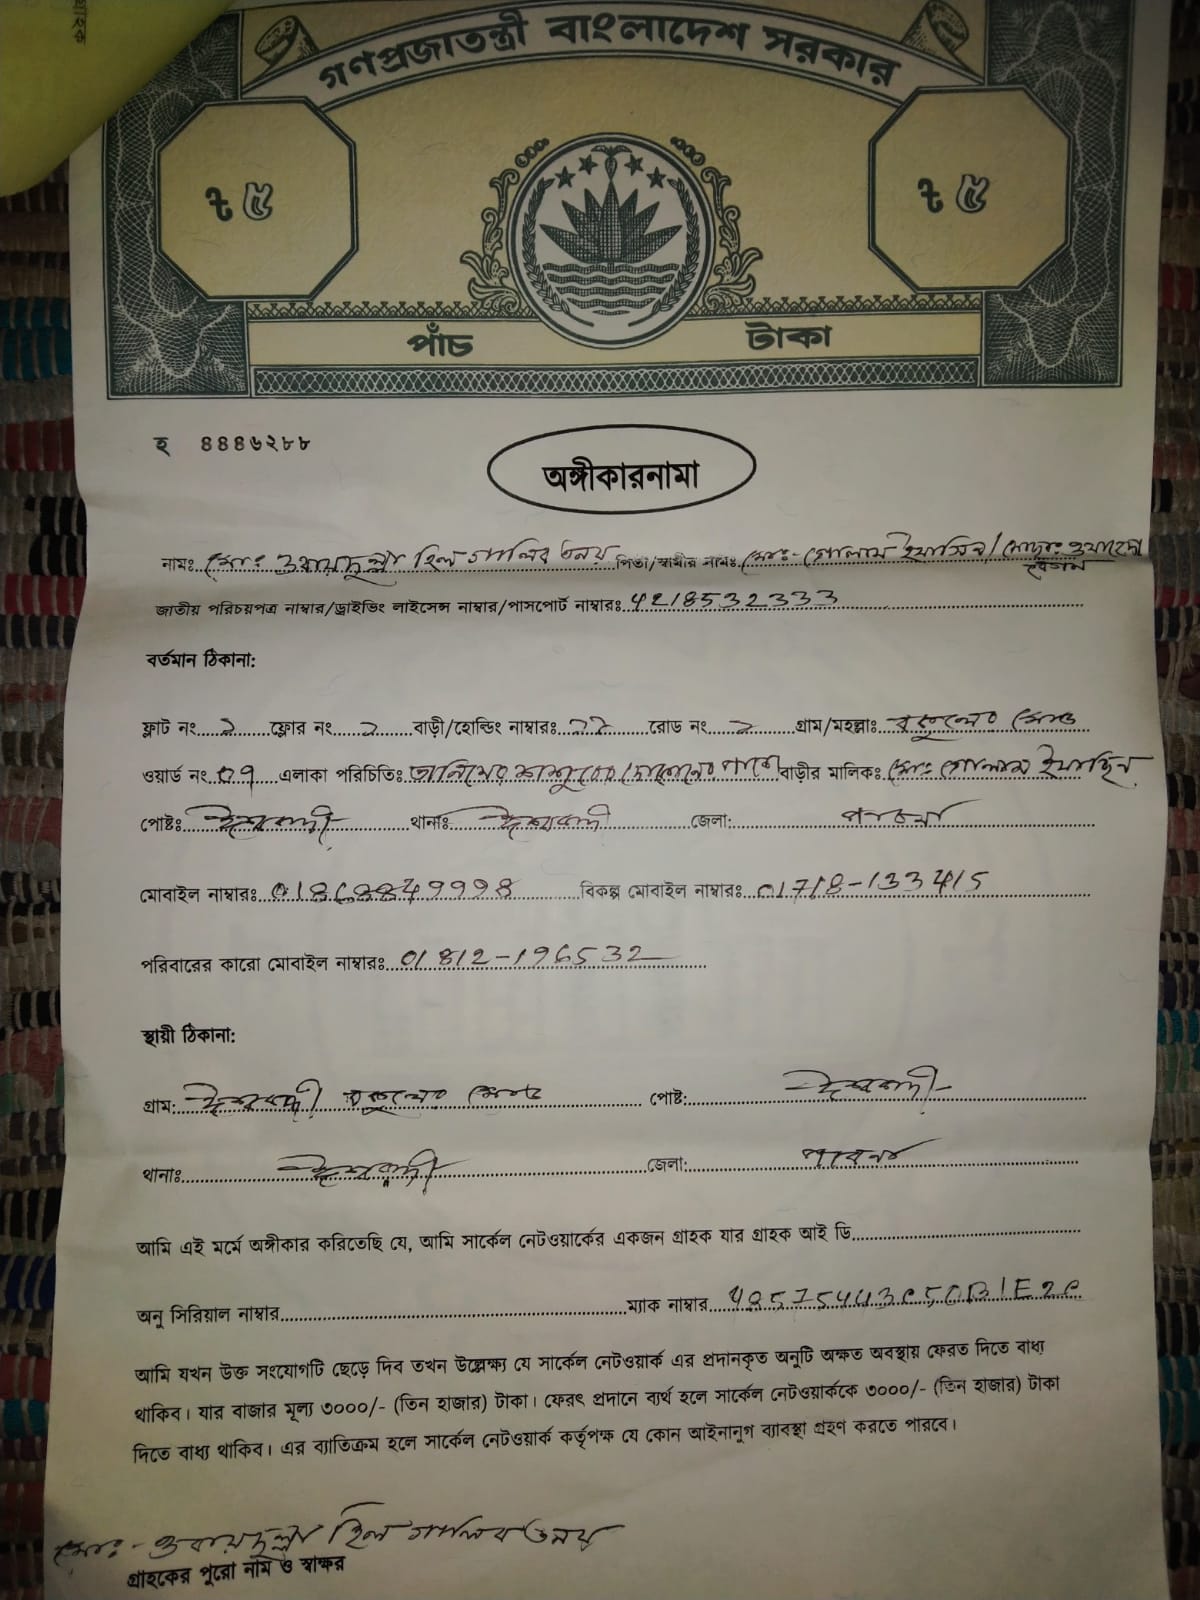 গ্রাহক
গণপ্রজাতন্ত্রী বাংলাদেশ সরকার
৳ ৫ ৳ ৫
পাঁচ টাকা
হ ৪৪৪৬২৮৮
অঙ্গীকারনামা
নামঃ মোঃ ওবায়দুল্লা হিল গালিব তনয় পিতা/স্বামীর নামঃ মোঃ- গোলাম ইয়াসিন/ মোছাঃ
জাতীয় পরিচয়পত্র নাম্বার/ড্রাইভিং লাইসেন্স নাম্বার/পাসপোর্ট নাম্বারঃ 4218532333
বর্তমান ঠিকানা:
ফ্লাট নং ফ্লোর নং বাড়ী/হোল্ডিং নাম্বারঃ রোড নং গ্রাম/মহল্লাঃ
ওয়ার্ড নং এলাকা পরিচিতিঃ পাশে বাড়ীর মালিকঃ মোঃ গোলাম ইয়াছিন
পোষ্টঃ ঈশ্বরদী থানাঃ ঈশ্বরদী জেলা: পাবনা
মোবাইল নাম্বারঃ বিকল্প মোবাইল নাম্বারঃ 01718-133415
পরিবারের কারো মোবাইল নাম্বারঃ 01812-196532
স্থায়ী ঠিকানা:
গ্রাম: ঈশ্বরদী পোষ্ট: ঈশ্বরদী
থানাঃ ঈশ্বরদী জেলা: পাবনা
আমি এই মর্মে অঙ্গীকার করিতেছি যে, আমি সার্কেল নেটওয়ার্কের একজন গ্রাহক যার গ্রাহক আই ডি
অনু সিরিয়াল নাম্বার ম্যাক নাম্বার
আমি যখন উক্ত সংযোগটি ছেড়ে দিব তখন উল্লেক্ষ্য যে সার্কেল নেটওয়ার্ক এর প্রদানকৃত অনুটি অক্ষত অবস্থায় ফেরত দিতে বাধ্য
থাকিব। যার বাজার মূল্য ৩০০০/- (তিন হাজার) টাকা। ফেরৎ প্রদানে ব্যর্থ হলে সার্কেল নেটওয়ার্ককে ৩০০০/- (তিন হাজার) টাকা
দিতে বাধ্য থাকিব। এর ব্যাতিক্রম হলে সার্কেল নেটওয়ার্ক কর্তৃপক্ষ যে কোন আইনানুগ ব্যাবস্থা গ্রহণ করতে পারবে।
মোঃ- ওবায়দুল্লা হিল গালিব তনয়
গ্রাহকের পুরো নাম ও স্বাক্ষর